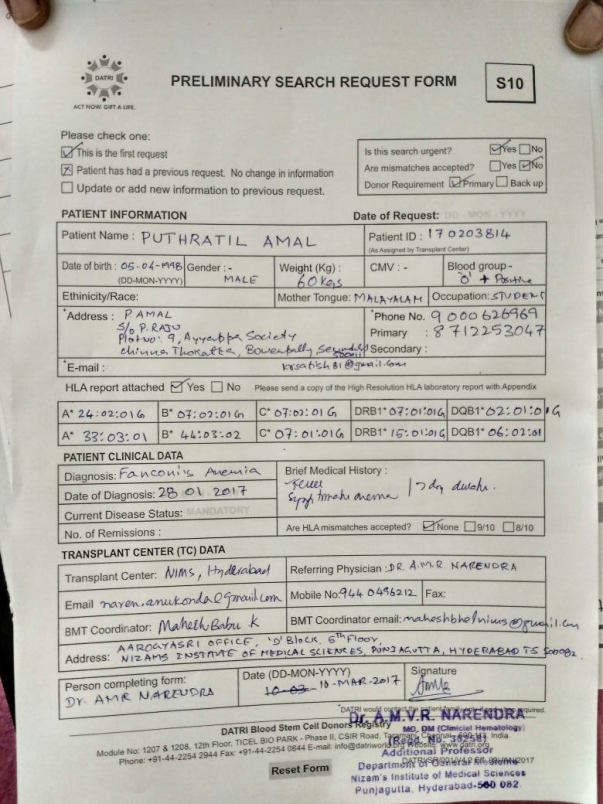 DATRI
ACT NOW. GIFT A LIFE.
PRELIMINARY SEARCH REQUEST FORM
S10
Please check one:
This is the first request
Patient has had a previous request. No change in information
Update or add new information to previous request.
Is this search urgent? Yes No
Are mismatches accepted? Yes No
Donor Requirement Primary Back up
PATIENT INFORMATION
Date of Request: DD - MON - YYYY
Patient Name : PUTHRATIL AMAL
Patient ID : 170203814
(As Assigned by Transplant Center)
Date of birth : 05-04-1998
(DD-MON-YYYY)
Gender :-
MALE
Weight (Kg) :
60 Kgs
CMV : -
Blood group-
'O' + Positive
Ethnicity/Race:
Mother Tongue: MALAYALAM
Occupation: STUDENT
*Address : P. AMAL
S/o P. RAJU
Plot No: 9, Ayyappa Society
Chinna Thokatta, Bowenpally,
*Phone No. 9000626969
Primary : 8712253047
Secondary :
*E-mail : krsatish81@gmail.com
HLA report attached Yes No Please send a copy of the High Resolution HLA laboratory report with Appendix
A* 24:02:01G B* 07:02:01G C* 07:02:01G DRB1* 07:01:01G DQB1* 02:01:01G
A* 33:03:01 B* 44:03:02 C* 07:01:01G DRB1* 15:01:01G DQB1* 06:02:01
PATIENT CLINICAL DATA
Diagnosis: Fanconi's Anemia
Date of Diagnosis: 28 01 2017
Current Disease Status: MANDATORY
No. of Remissions :
Brief Medical History :
Are HLA mismatches accepted? None 9/10 8/10
TRANSPLANT CENTER (TC) DATA
Transplant Center: NIMS, Hyderabad
Referring Physician : DR. A.M.R. NARENDRA
Email naren.anukonda@gmail.com
Mobile No: 944 0496212
Fax:
BMT Coordinator: Mahesh Babu K
BMT Coordinator email: maheshbhelnims@gmail.com
AAROGYASRI OFFICE, 'D' BLOCK, 6th Floor,
Address: NIZAMS INSTITUTE OF MEDICAL SCIENCES, PUNJAGUTTA, HYDERABAD TS 500082
Person completing form:
Dr. AMR NARENDRA
Date (DD-MON-YYYY)
10-03- 10-MAR-2017
Signature
DATRI would contact the required.
Dr. A.M.V.R. NARENDRA
MD, DM (Clinical Hematology)
DATRI Blood Stem Cell Donors Registry
Module No: 1207 & 1208, 12th Floor, TICEL BIO PARK - Phase II, CSIR Road, India
(Regd. No. 38258)
Phone: +91-44-2254 2944 Fax: +91-44-2254 0644 E-mail: Website: www.datri.org
Additional Professor
Department of General Medicine
Reset Form
Nizam's Institute of Medical Sciences
Punjagutta, Hyderabad-500 082.